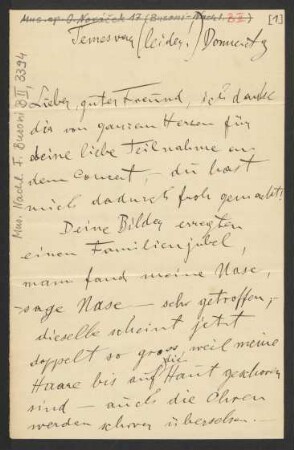 Mus. ep. O. Nováček 17 (Busoni-Nachl. B II) [1]
Mus. Nachl. F. Busoni B II, 3394
Temesvar (leider!) Donnerstg
Lieber, guter Freund, ich danke
dir von ganzem Herzen für
deine liebe Teilnahme an
dem Concert, – du hast
mich dadurch froh gemacht!
Deine Bilder erregten
einen Familienjubel,
mann fand meine Nase,
– sage Nase – sehr getroffen,
dieselbe scheint jetzt
doppelt so gross, weil meine
die
Haare bis auf Haut geschoren
sind – auch die Ohren
werden schwer übersehen. –